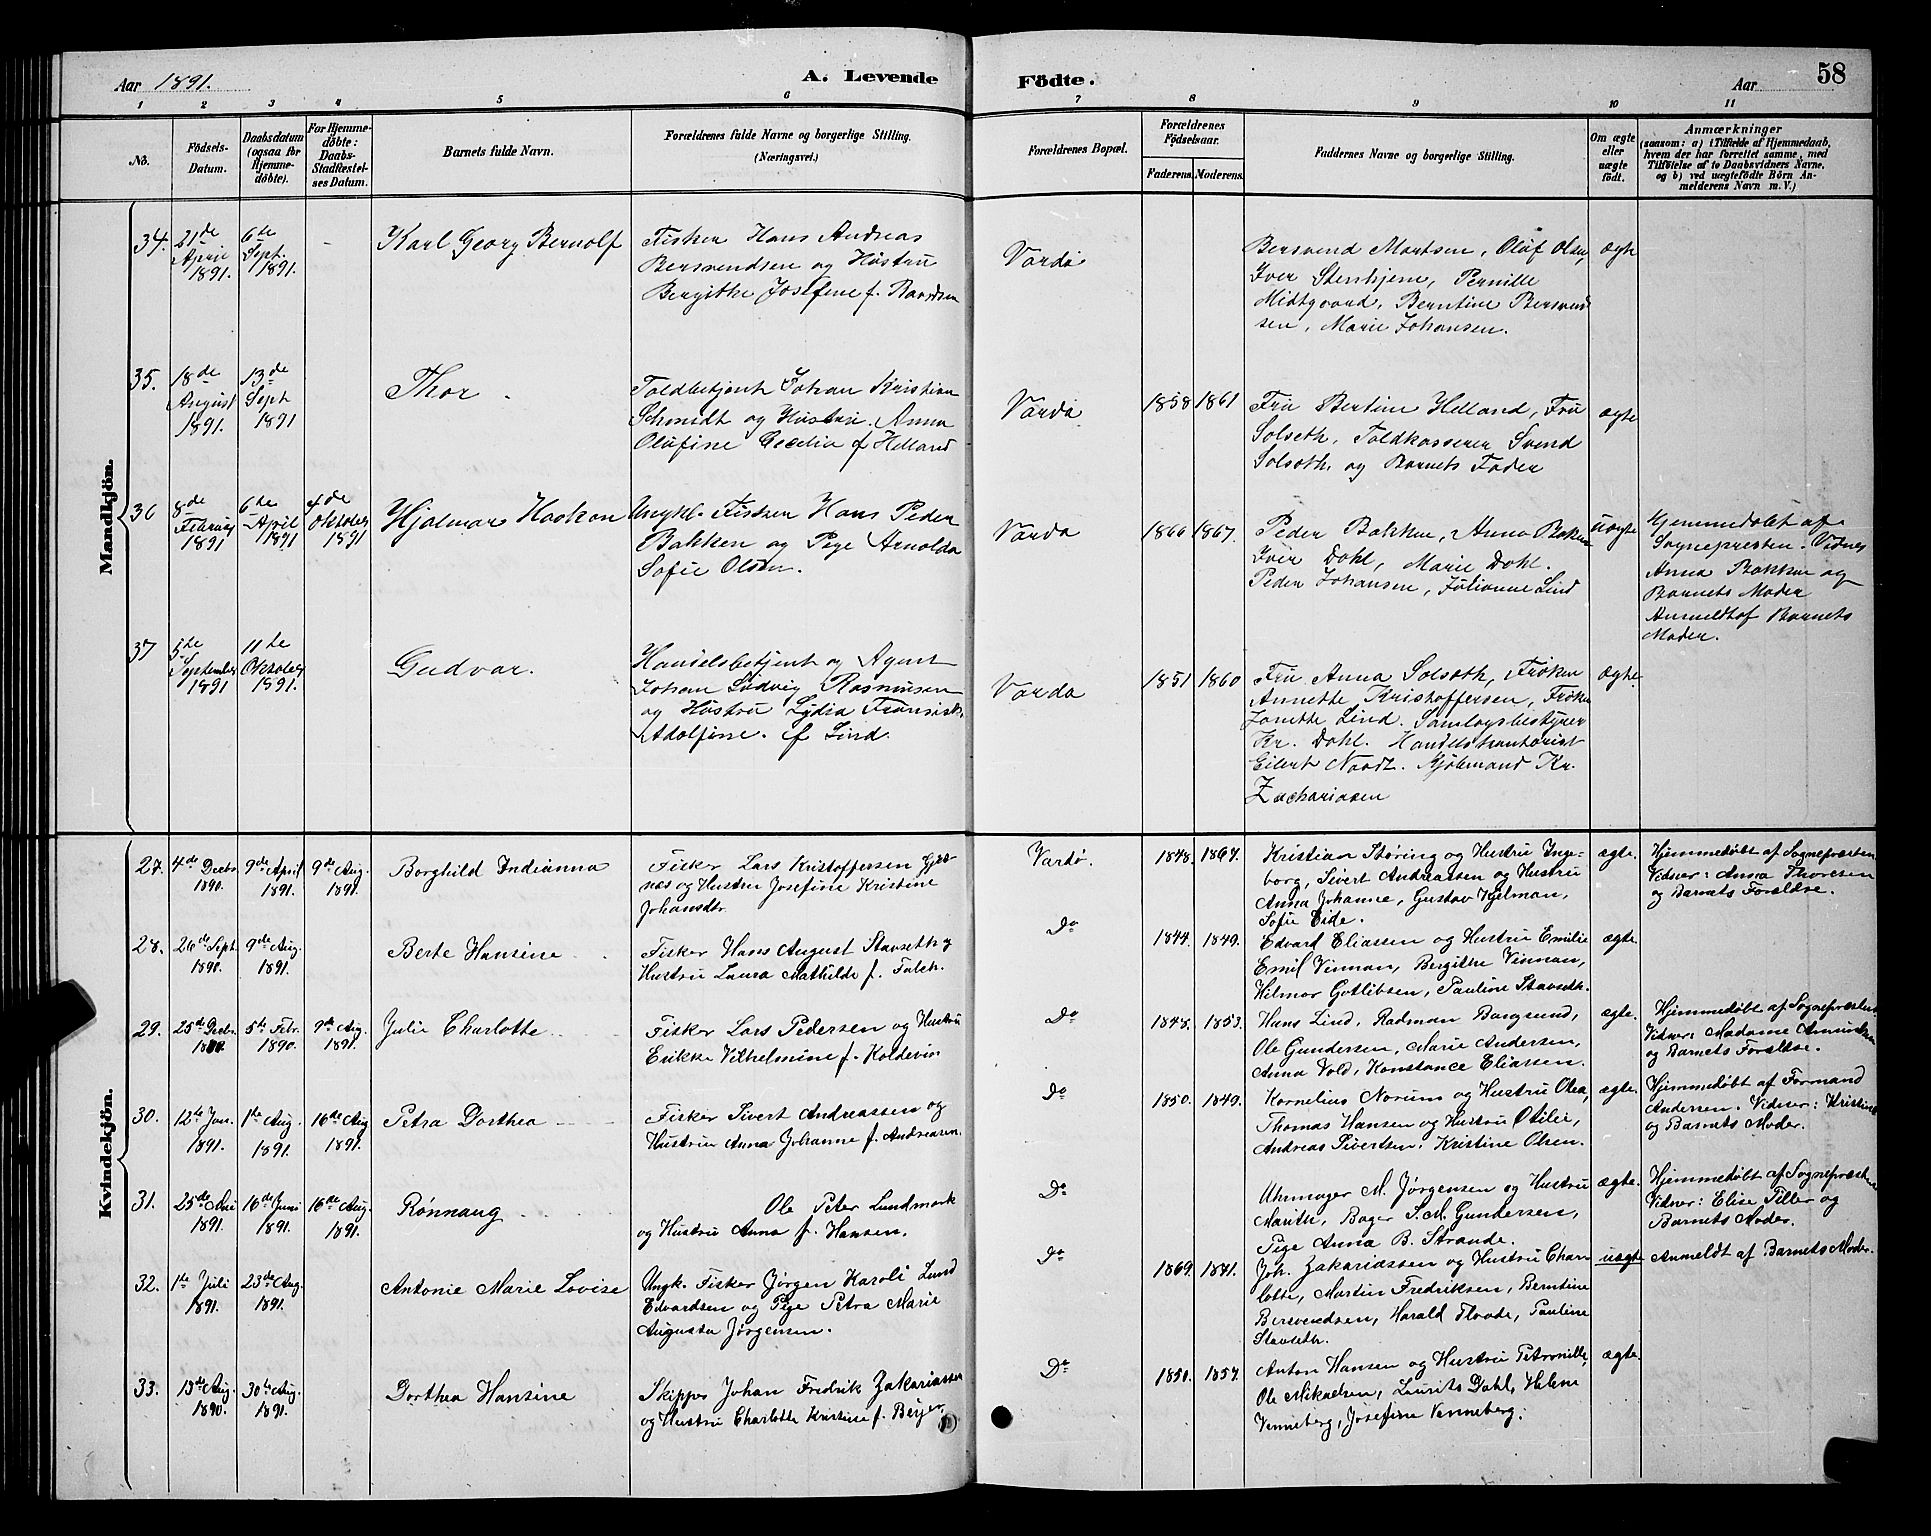 Aar 1891.
A. Levende
Födte.
Aar
58
1 2 3 4 5 6 7 8 9 10 11
No.
Födsels-
Datum.
Daabsdatum
(ogsaa for
Hjemme-
döbte).
For Hjemme-
döbte:
Daabs-
Stadfæstel-
ses Datum.
Barnets fulde Navn.
Forældrenes fulde Navne og borgerlige Stilling.
(Næringsvei.)
Forældrenes Bopæl.
Forældrenes
Födselsaar.
Faderens. Moderens.
Faddernes Navne og borgerlige Stilling.
Om ægte
eller
uægte
födt.
Anmærkninger
(saasom: a) i Tilfælde af Hjemmedaab,
hvem der har forrettet samme, med
Tilföielse af to Daabsvidners Navne,
og b) ved uægtefödte Börn An-
melderens Navn m. V.)
Mandkjön.
34.
21de
April
1891.
6te
Sept.
1891.
-
Karl Georg Bernolf
Fisker Hans Andreas
Bersvendsen og Hustru
Bergithe Josefine f. Bardsen
Vardø
Bersvend Martsen, Olaf Olsen,
Iver Stenhjem, Pernille
Midtgaard, Berntine Bersvend
sen, Marie Johansen.
ægte
35.
18de
August
1891.
13de
Sept
1891
Thor
Toldbetjent Johan Kristian
Schmidt og Hustru Anna
Olufine Cecilia f Helland
Vardø
1858 1861
Fru Bertine Helland, Fru
Solseth, Toldkasserer Svend
Solseth, og Barnets Fader
ægte
36
8de
Februar
1891
6te
April
1891
4de
Oktober
1891
Hjalmar Haakon
Ungkl. Fisker Hans Peder
Bakken og Pige Arnolda
Sofie Olsen.
Vardø
1866 1867.
Peder Bakken, Anna Bakken
Iver Dahl, Marie Dahl.
Peder Johansen, Julianne Lind
uægte
Hjemmedøbt af
Sognepresten. Vidner
Anna Bakken og
Barnets Moder
Anmeldt af Barnets
Moder.
37
5te
September
1891
11te
Oktober
1891.
Gudvar.
Handelsbetjent og Agent
Johan Ludvig Rasmussen
og Hustru Lydia Fransiska
Adolfine. f Lind.
Vardø
1851 1860
Fru Anna Solseth, Frøken
Annette Kristoffersen, Frøken
Janette Lind. Samlagsbestyrer
Kr. Dahl. Handelskontorist
Eilert Naadt. Kjøbmand Kr.
Zachariasen
ægte.
Kvindekjön.
27. 4de Decbr.
1890.
9de April
1891.
9de Aug.
1891.
Borghild Indianna
Fisker Lars Kristoffersen Gjes-
nes og Hustru Josefine Kristine
Johansdtr.
Vardø.
1848. 1867.
Kristian Støring og Hustru Inge-
borg, Sivert Andreassen og Hustru
Anna Johanne, Gustav Hjelman,
Sofie Eide.
ægte.
Hjemmedøbt af Sognepræsten
Vidner: Anna Thoresen
og Barnets Forældre.
28. 26de Sept.
1890.
9de Aug.
1891.
Berte Hansine
Fisker Hans August Stavseth og
Hustru Laura Mathilde f. Falch.
Do
1844. 1849.
Edvard Eliassen og Hustru Emilie
Emil Vinnan, Bergithe Vinnan,
Hilmar Gotlibsen, Pauline Stavseth.
ægte.
29. 25de Decbr.
5te Febr.
1890.
9de Aug.
1891.
Julie Charlotte
Fisker Lars Pedersen og Hustru
Erikke Vilhelmine f. Koldevin
Do
1848. 1853.
Hans Lind, Radman Bangsund,
Ole Gundersen, Marie Andersen,
Anna Vold, Konstance Eliassen.
ægte.
Hjemmedøbt af Sognepræsten
Vidner: Madame Amundsen
og Barnets Forældre.
30. 12te Jan.
1891.
1ste Aug.
1891.
16de Aug
1891.
Petra Dorthea
Fisker Sivert Andreassen og
Hustru Anna Johanne f. Andreasen.
Do
1850. 1849.
Kornelius Norum og Hustru Olea,
Thomas Hansen og Hustru Otilie,
Andreas Sivertsen, Kristine Olsen.
ægte.
Hjemmedøbt af Fornand
Andersen. Vidner: Kristine
og Barnets Moder.
31. 25de Mai
1891.
16de Juni
1891.
16de Aug.
1891.
Rønnaug
Ole Peter Lundmark
og Hustru Anna f. Hansen.
Do
Uhrmager M. Jørgensen og Hustru
Marith, Bager S. M. Gundersen,
Pige Anna B. Strande.
ægte.
Hjemmedøbt af Sognepræsten
Vidner: Elise Tiller og
Barnets Moder.
32. 1ste Juli
1891.
23de Aug.
1891.
Antonie Marie Lovise
Ungk. Fisker Jørgen Karoli Lund
Edvardsen og Pige Petra Marie
Augusta Jørgensen.
Do
1869. 1871.
Joh. Zakariassen og Hustru Char
lotte, Martin Fredriksen, Berntine
Bersvendsen, Harald Floode, Pauline
Stavseth.
uægte
Anmeldt af Barnets Moder.
33. 13de Aug.
1890.
30te Aug.
1891.
Dorthea Hansine
Skipper Johan Fredrik Zakariassen
og Hustru Charlotte Kristine f. Beyer
Do
1850. 1857.
Anton Hansen og Hustru Petronille,
Ole Mikaelsen, Laurits Dahl, Helene
Venneberg, Josefine Venneberg.
ægte.